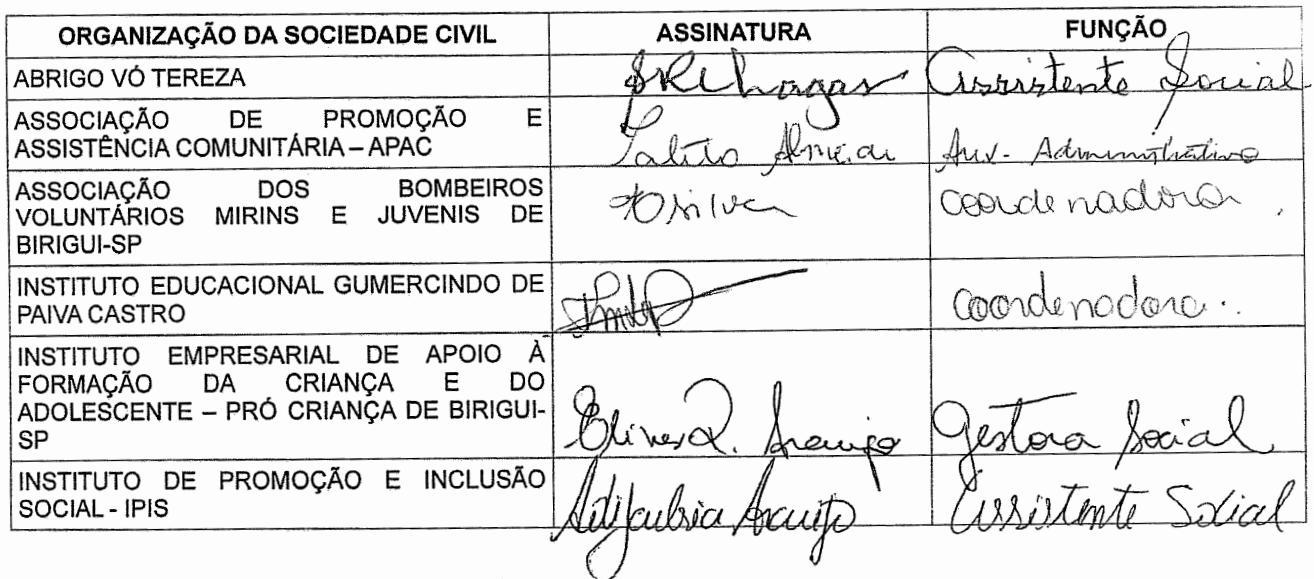 ORGANIZAÇÃO DA SOCIEDADE CIVIL ASSINATURA FUNÇÃO
ABRIGO VÓ TEREZA Assistente Social
ASSOCIAÇÃO DE PROMOÇÃO E
ASSISTÊNCIA COMUNITÁRIA – APAC Aux. Administrativo
ASSOCIAÇÃO DOS BOMBEIROS
VOLUNTÁRIOS MIRINS E JUVENIS DE Silva coordenadora
BIRIGUI-SP
INSTITUTO EDUCACIONAL GUMERCINDO DE
PAIVA CASTRO coordenadora
INSTITUTO EMPRESARIAL DE APOIO À
FORMAÇÃO DA CRIANÇA E DO
ADOLESCENTE – PRÓ CRIANÇA DE BIRIGUI-
SP Araujo Gestora Social
INSTITUTO DE PROMOÇÃO E INCLUSÃO
SOCIAL - IPIS Araujo Assistente Social